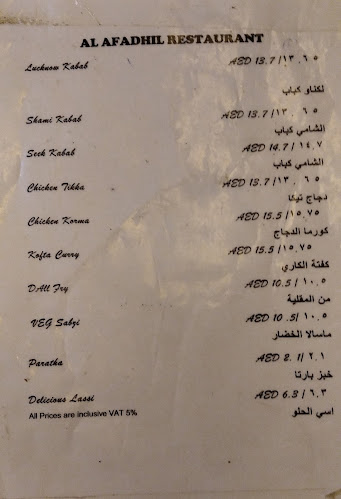 AL AFADHIL RESTAURANT
Lucknow Kabab AED 13.7 /١٣.٦٥
لكناو كباب
Shami Kabab AED 13.7 /١٣.٦٥
الشامي كباب
Seek Kabab AED 14.7 /١٤.٧
الشامي كباب
Chicken Tikka AED 13.7 /١٣.٦٥
دجاج تيكا
Chicken Korma AED 15.5 /١٥.٧٥
كورما الدجاج
Kofta Curry AED 15.5 /١٥.٧٥
كفتة الكاري
DAll Fry AED 10.5 /١٠.٥
من المقلية
VEG Sabzi AED 10.5/ ١٠.٥
ماسالا الخضار
Paratha AED 2.1/ ٢.١
خبز بارتا
Delicious Lassi AED 6.3 / ٦.٣
All Prices are inclusive VAT 5%
اسي الحلو